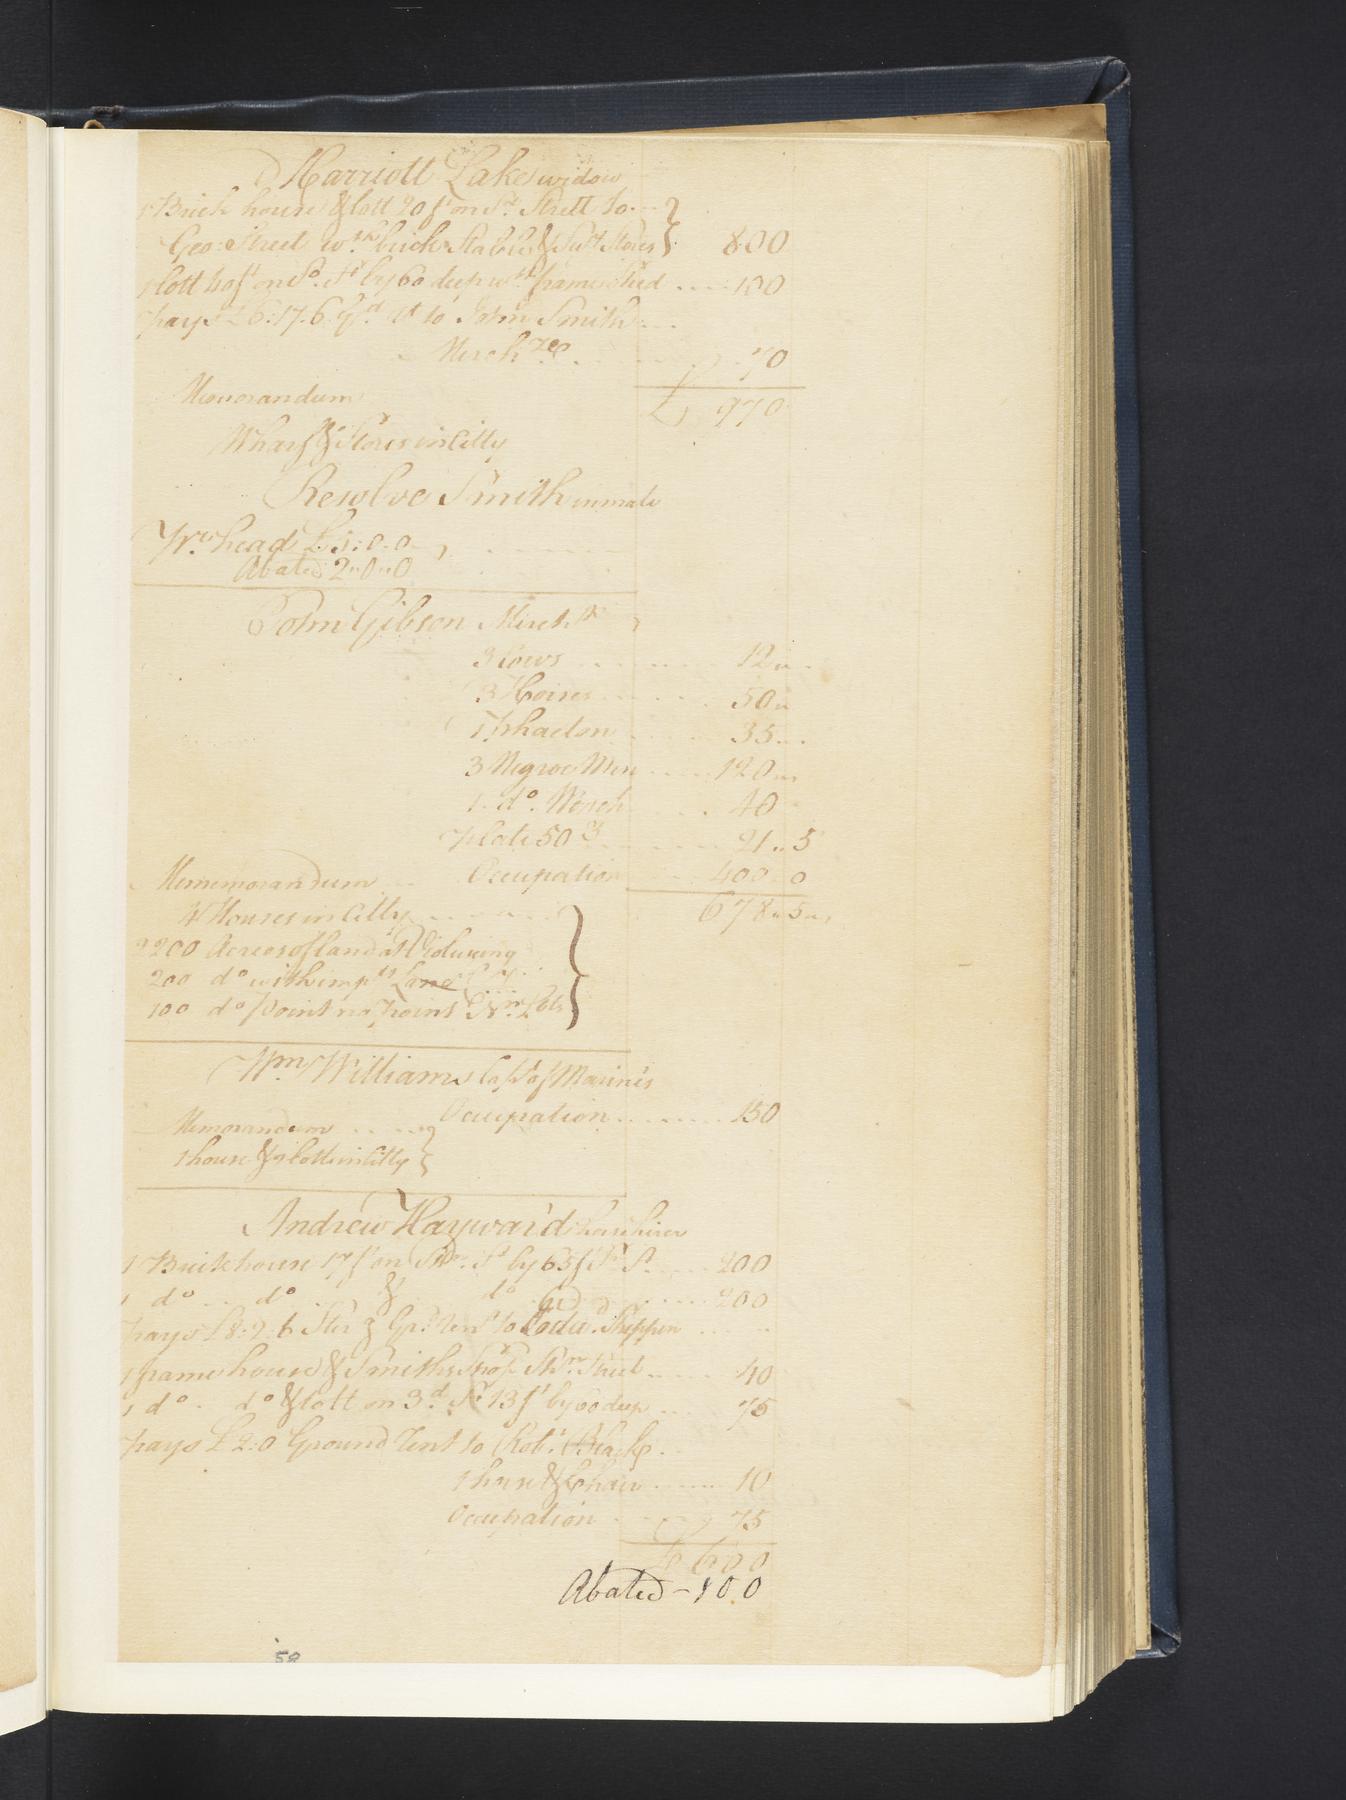 Harriott Lake widow
1 Brick house & lott 20 ft on St. Strett to
Geo: Street wth. brick Stable & Salt Stores 800
1 lott 40 ft on So. St by 60 deep wth frame Shed .... 100
pays £6:17.6 to John Smith
Merch 70
£ 970
Memorandum
Wharf & Stores in Citty
Resolve Smith inmate
Pr. head £1:0.0
Abated 2"0"0
John Gibson Mercht
3 Cows ... 12 "
3 Horses ... 50 "
1 Phaeton ... 35 ..
3 Negroe Men ... 120 "
1 do. Wench ... 40
Plate 50 ℥ ... 21 .. 5
Occupation ... 400 .. 0
678 " 5 "
Mememorandum
4 Houses in Citty
2200 Acres of land at
200 do with impts
100 do Point no point
Wm Williams Capt of Marines
Occupation ... 150
Memorandum
1 house & 2 lotts in Citty
Andrew Hayward
1 Brick house 17 ft on St by 65 f St ... 200
1 do .. do & do ... 200
pays £8:2.6 Ster Gr. rent to Shippen
1 frame house & Smiths Shop Street ... 40
1 do. do & lott on 3d St 13 ft by 60 deep ... 75
pays £2:0 Ground Rent to Robt.
1 horse & Chair ... 10
Occupation ... 75
£ 600
Abated - 100
58